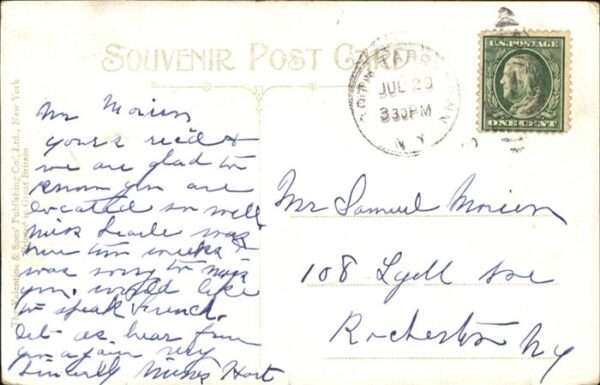 SOUVENIR POST CARD
U.S. POSTAGE
ONE CENT
JUL 20
330PM
N.Y.
The Valentine & Sons' Publishing Co., Ltd., New York
Printed in Great Britain
Mr
yours rec'd &
we are glad to
know you are
located so well
Miss was
here two weeks &
was sorry to miss
you. would like
to speak French.
let us hear from
you again very
Sincerely Hart
Mr Samuel
108 Lyell Ave
Rochester NY